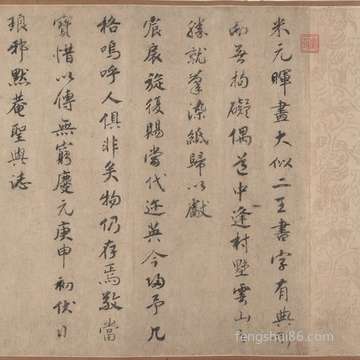 米元暉畫大似二王書字有典
而無拘礙偶道中逢村墅雲山
勝就筆染紙歸以獻
宸扆旋復賜當代 英今歸予几
格嗚呼人俱非矣物仍存焉敬當
寶惜以傳無窮慶元庚申初伏日
琅邪默菴聖與誌
fengshui86.com